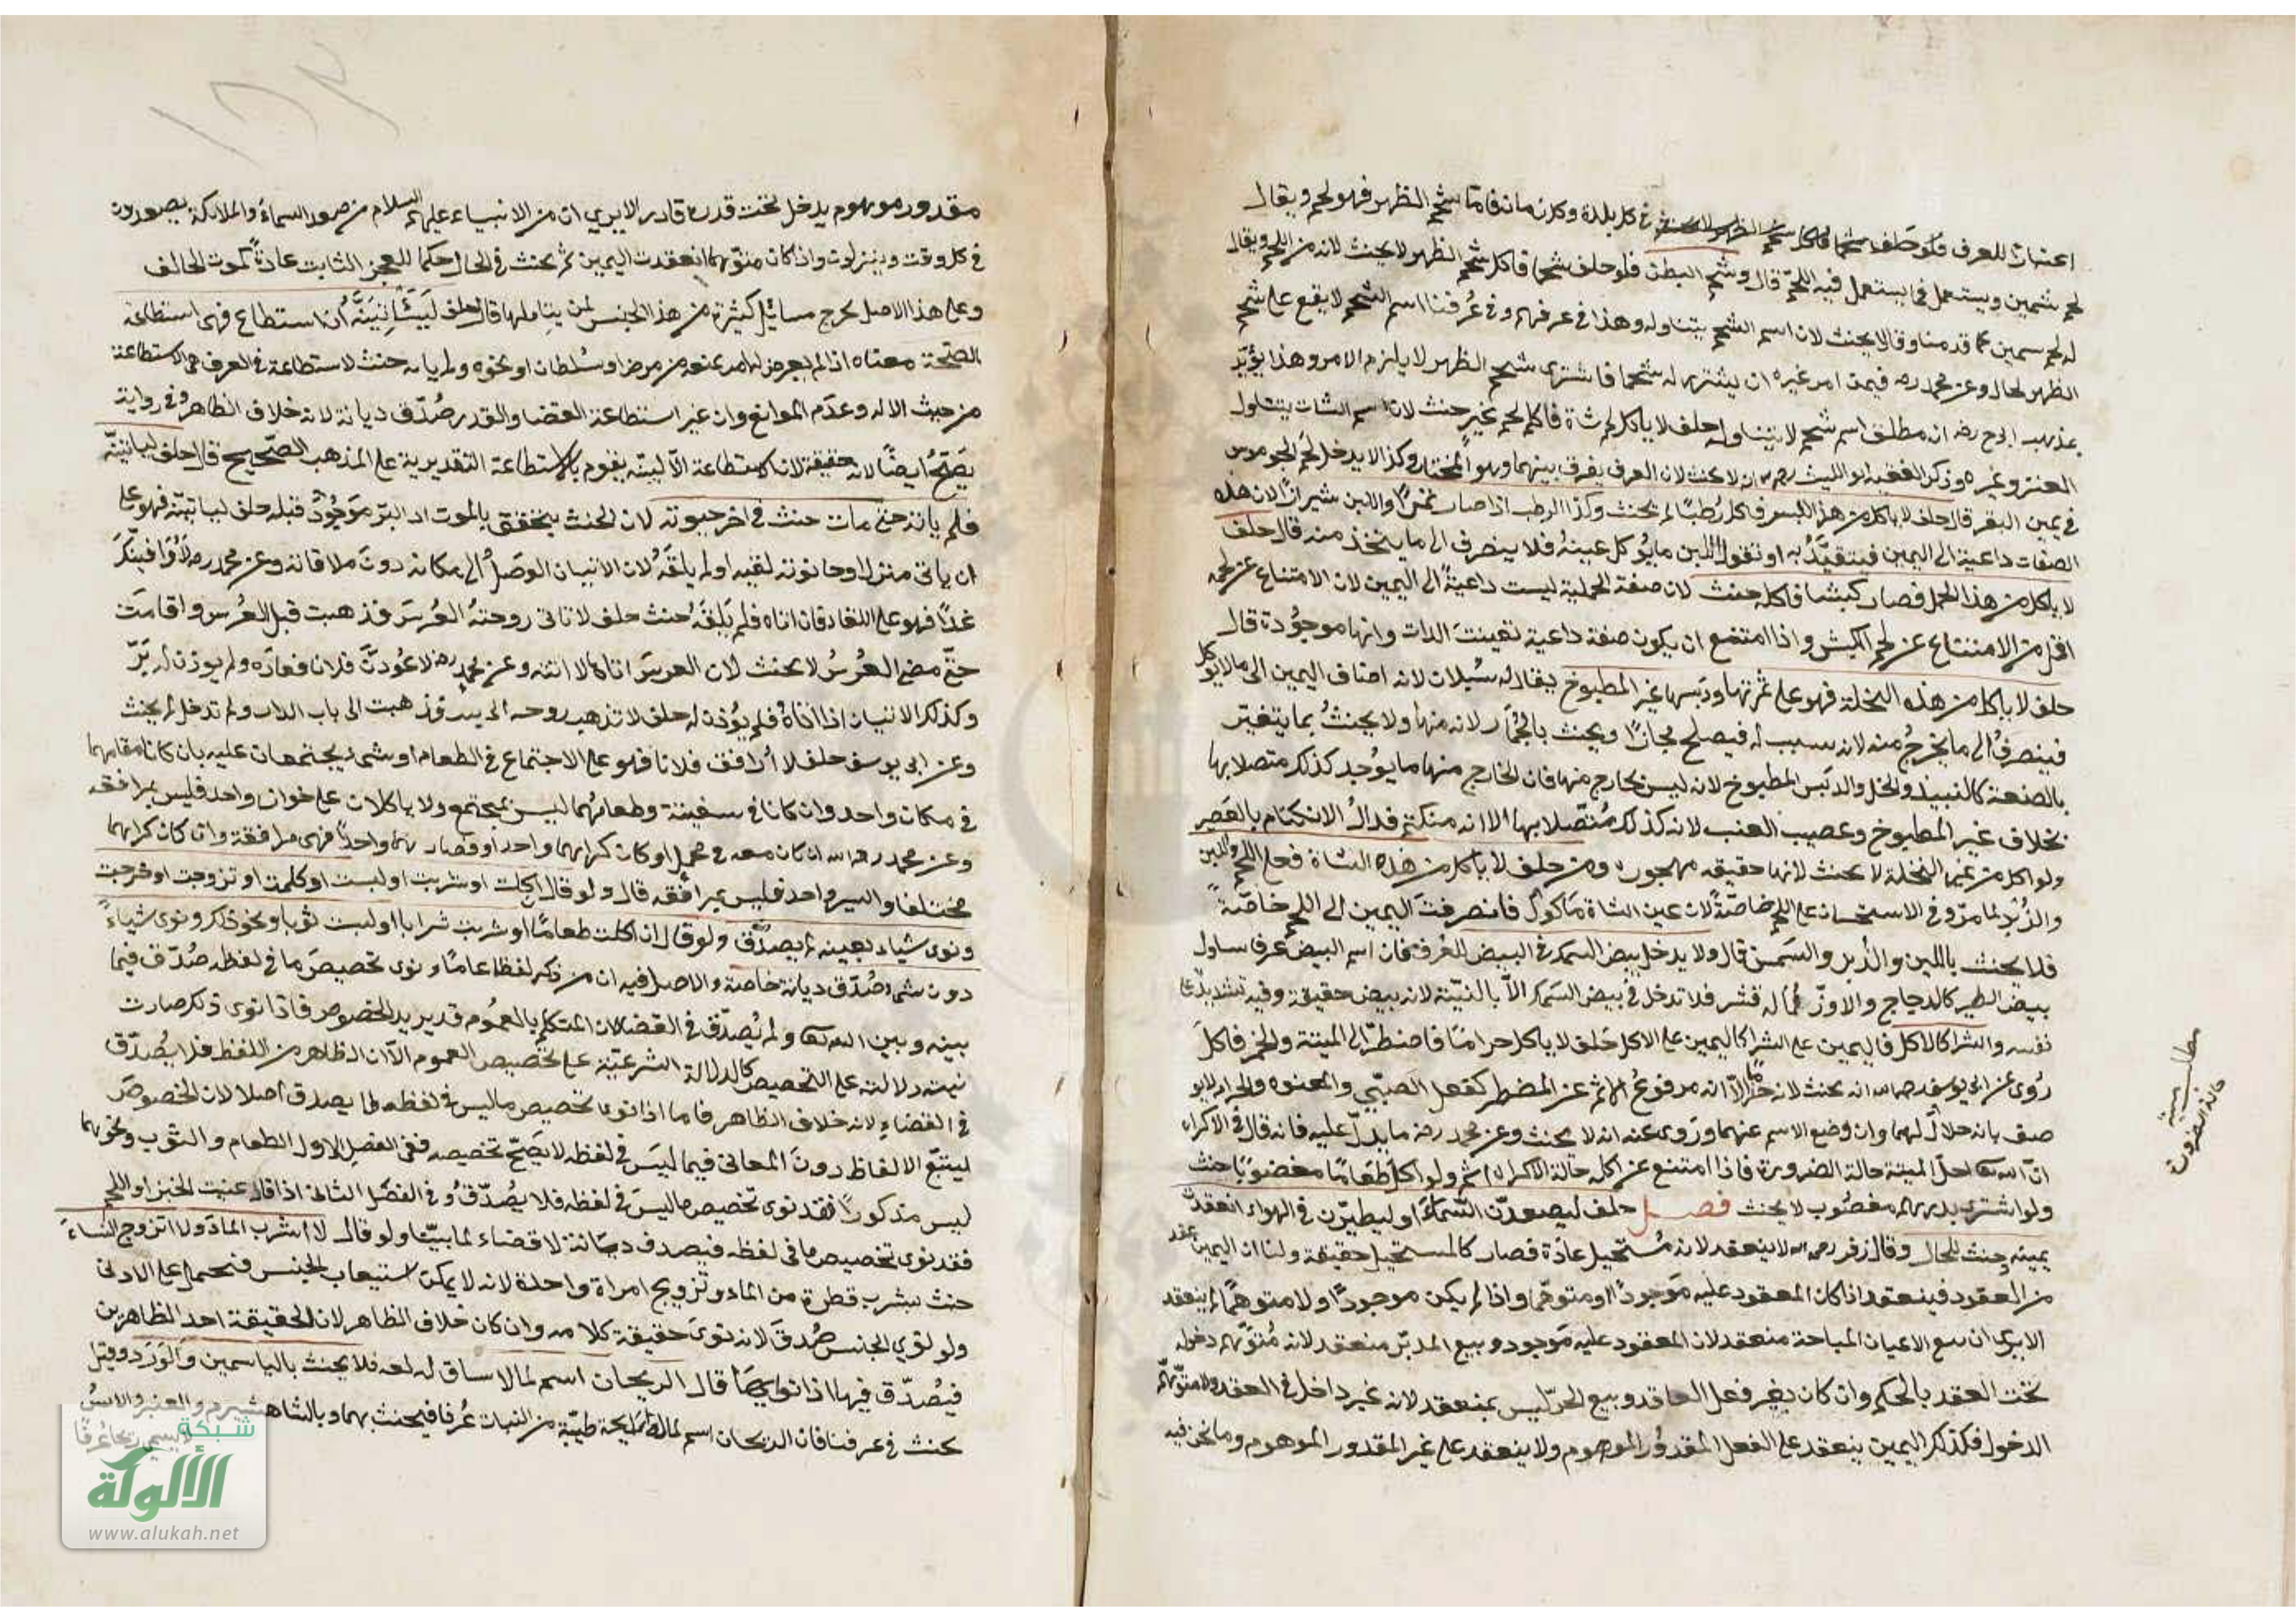 اعتبارًا للعرف فلو حلف شحما فاكل شحم الظهر لا يحنث في كل بلدة وكل زمان فاما شحم الظهر فهو لحم ويقال
لحم سمين ويستعمل فيما يستعمل فيه اللحم قال وشحم البطن فلو حلف شحما فاكل شحم الظهر لا يحنث لانه من اللحم ويقال
له لحم سمين كما قدمنا وقالا يحنث لان اسم الشحم يتناوله وهذا في عرفهم وفي عُرفنا اسم الشحم لا يقع على شحم
الظهر بحال وعن محمد رح فيمن امر غيره ان يشتري له شحما فاشترى شحم الظهر لا يلزم الامر وهذا يؤيّد
مذهب ابي ح رح ان مطلق اسم شحم لا يتناوله حلف لا ياكل لحم شاة فاكل لحم عنز حنث لان اسم الشاة يتناول
العنز وغيره وذكر الفقيه ابو الليث رحمه الله ان لا يحنث لان العرف يفرق بينهما وهو المختار وكذا لا يدخل لحم الجوموس
في يمين البقر قال حلف لا ياكل من هذا البسر فاكل رُطبًا لم يحنث وكذا الرطب اذا صار تمرًا واللبن شيرازًا لان هذه
الصفات داعية الى اليمين فيتقيَّدُ به او نقول اللبن مايؤكل عينهُ فلا ينصرف الى ما يتخذ منه قال حلف
لا ياكل من هذا الحمل فصار كبشا فاكله حنث لان صفة الحملية ليست داعيةً الى اليمين لان الامتناع عن لحمه
اقل من الامتناع عن لحم الكبش واذا امتنع ان يكون صفة داعية تعينت الذات وانها موجُودة قال
حلف لا ياكل من هذه النخلة فهو على ثمرتها ودبسها غير المطبوخ يقال له سيلان لانه اضاف اليمين الى مالا يؤكل
فينصرفُ الى ما يخرجُ منه لانه سبب له فيصلح مجازًا ويحنث بالجُمّار لانه منها ولا يحنثُ بما يتغيّر
بالصنعة كالنبيذ والخل والدبس المطبوخ لانه ليس بخارج منها فان الخارج منها ما يوُجد كذلك متصلا بها
بخلاف غير المطبوخ وعصير العنب لانه كذلك مُتصلا بها الا انه منكتم فزال الانكتام بالعَصر
ولو اكل من عين النخلة لا يحنث لانها حقيقه مهجورة ومن حلف لا ياكل من هذه الشاة فعلى اللحم واللبن
والزُبد لما مرّ وفي الاستحسان على اللحم خاصّةً لان عين الشاة مَاكولٌ فانصرفت اليمين الى اللحم خاصّةً
فلا يحنث باللبن والزبد والسَمن قال ولا يدخل بيض السمك في البيض للعُرف فان اسم البيض عرفا يتناول
بيض الطير كالدجاج والاوزّ مما له قشر فلا تدخل في بيض السَمك الّا بالنيّة لانه بيض حقيقة وفيه تشديدٌ على
نفسه والشراكالاكل فاليمين على الشرا كاليمين على الاكل حَلف لا ياكل حرامًا فاضطرّ الى الميتة والخمر فاكلَ
رُوى عن ابي يوسف رحمه الله انه يحنث لانه حرامٌ الّا انه مرفوعُ الاثم عن المضطر كفعل الصبيّ والمعتوه والجراد لا يو
صف بانه حلالٌ لهما وان وضع الاسم عنهما ورُوى عنه انه لا يحنث وعن محمد رح ما يدلّ عليه فانه قال في الاكراه
انّ الله تعالى احلّ الميتة حالة الضرورة فاذا امتنع عن اكله حالة الاكراه اثم ولو اكل طَعَامًا مغصُوبًا حنث
ولو اشترى بدرهم مغصُوب لا يحنث فصل حلف ليصعدنّ السَّماءَ او ليطيرّن في الهواء انعقدت
يمينه وحنث للحال وقال زفر رحمه الله لا ينعقد لانه مُستحيل عادَة فصار كالمستحيل حقيقة ولنا ان اليمين عقد
من العقود فينعقد اذا كان المعقود عليه مَوجودًا او متوهّما واذا لم يكن موجودًا ولا متوهمًا لم ينعقد
الا يرى ان بيع الاعيان المباحة منعقد لان المعقود عليه مَوجود وبيع المدبّر منعقد لانه مُتوهّم دخوله
تحت العقد بالحكم وان كان بغير فعل العاقد وبيع الحرّ ليس بمنعقد لانه غير داخل في العقد ولا متوَهّم
الدخول فكذلك اليمين ينعقد على الفعل المقدور الموهوم ولا ينعقد على غير المقدور الموهوم وما نحن فيه
مطلب ميتة
حالة الضرورة
مقدور موهوم يدخل تحت قدرة قادر الا يرى ان من الانبياء عليهم السلام من صعد السماء والملائكة يصعدون
في كل وقت وينزلون واذا كان متوّهما انعقدت اليمين ثم يحنث في الحال حكما للعجز الثابت عادةً كموت الحالف
وعلى هذا الاصل يخرج مسائل كثيرة من هذا الجنس لمن يتاملها قال حلف لَيَاتِيَنَّهُ ان استطاع فهي استطاعة
الصّحة معناه اذا لم يعرض له امر يمنعه من مرض او سُلطان او نحوه ولم ياته حنث لان الاستطاعة في العرف هي الاستطاعة
من حيث الاله وعدم الموانع وان عنى استطاعة القضا والقدر صُدّق ديانة لانه خلاف الظاهر وفي رواية
يَصحّ ايضًا لانه حقيقة لان الاستطاعة الاليّه يقوم بالاستطاعة التقديرية على المذهب الصّحيح قال حلف لياتينّه
فلم ياته حتى مات حنث في اخر حيوته لان الحنث يتحقق بالموت اذ البرّ مَوجُودٌ قبله حلف لياتينّه فهو على
ان ياتى منزله او حانوته لقيه او لم يلقَهُ لان الاتيان الوصُولُ الى مكانه دونَ ملاقاته وعن محمد رح
غدًا فهو على اللقاء فان اتاه فلم يَلقَهُ حنث حلف لا تاتى زوجتهُ العُرسَ فذهبت قبل العُرس واقامت
حتّى مضى العُرسُ لا يحنث لان العرسَ اتاها لا اتته وعن محمد رح لاعُودنّ فلانا فعادَه ولم يوذن له بَرّ
وكذلك الاتيان اذا اتاهُ فلم يُؤذن له حلف لا تذهب زوجته الى بيت فذهبت الى باب الدار ولم تدخل لم يحنث
وعن ابي يوسف حلف لا أرافق فلانا فهو على الاجتماع في الطعام او شيء يجتمعان عليه بان كانا مقامهما
في مكان واحد وان كانا في سفينة وطعامُهما ليس بمجتمع ولا ياكلان على خوان واحد فليس بمرافقه
وعن محمد رحمه الله ان كان معه في محمل او كان كراهما واحد او قطارهما واحدًا فهي مرافقة وان كان كراهما
مختلفا والسير واحد فليس بمرافقه قال ولو قال ان اكلت او شربت او لبست او كلمت او تزوجت او خرجت
ونوى شيا بعينه لم يصدّق ولو قال ان اكلت طعامًا او شربت شرابا او لبست ثوبا ونحو ذلك ونوى شياءً
دون شيء صُدّق ديانة خاصة والاصل فيه ان من ذكر لفظا عامًا ونوى تخصيصَ ما في لفظه صُدّق فيما
بينه وبين الله تعالى ولم يُصدّق في القضا لان المتكلم بالعمُوم قد يريد الخصوص فاذا نوى ذلك صارت
نيته دلالة على التخصيص كالدلالة الشرعيّة على تخصيص العموم الّا ان الظاهر من اللفظ فلا يُصدّق
في القضاء لانه خلاف الظاهر فاما اذا نوى تخصيص ما ليس في لفظه لم يصدق اصلا لان الخصوصَ
ليتبّع الالفاظ دونَ المعانى فيما ليسَ في لفظه لا يَصحّ تخصيصه ففى الفصل الاول الطعام والثوب ونحوهما
ليس مذكورًا فقد نوى تخصيص ما ليسَ في لفظه فلا يُصدّقُ وفي الفصل الثانى اذا قال عنيت الخبز او اللحم
فقد نوى تخصيص ما في لفظه فيصدق ديانة لا قضاء لما بيّنا ولو قال لا اشرب الماءَ ولا اتزوج النساءَ
حنث بشرب قطرة من الماء وتزويج امراة واحدة لانه لا يمكن استيعاب الجنس فتحمل على الادنى
ولو نوى الجنس صُدقَ لانه نوىَ حقيقة كلامه وان كان خلاف الظاهر لان الحقيقة احد الظاهرين
فيُصدّق فيها اذا نواها قال الريحان اسم لما لا ساق له فلا يحنث بالياسمين والوَرد وقيل
يحنث في عرفنا فان الريحان اسم لما له رايحة طيّبة من النبات عُرفا فيحنث بهما وبالشاهشبرم والعنبر والاسُ
لا يسمى ريحانا عُرفًا
شبكة
الألوكة
www.alukah.net